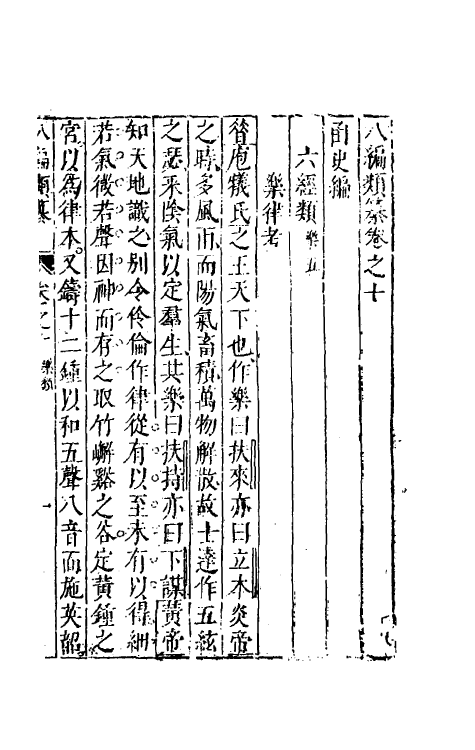 八編類纂卷之十
函史編
六經類 樂五
樂律考
昝庖犧氏之王天下也作樂曰扶來亦曰立本炎帝
之時多風雨而陽氣畜積萬物解散故士達作五絃
之瑟來陰氣以定羣生其樂曰扶持亦曰下謀黃帝
知天地識之別令伶倫作律從有以至未有以得細
若氣微若聲因神而存之取竹嶰谿之谷定黃鍾之
宮以爲律本又鑄十二鍾以和五聲八音而施英韶
八編類纂 卷之十 樂類